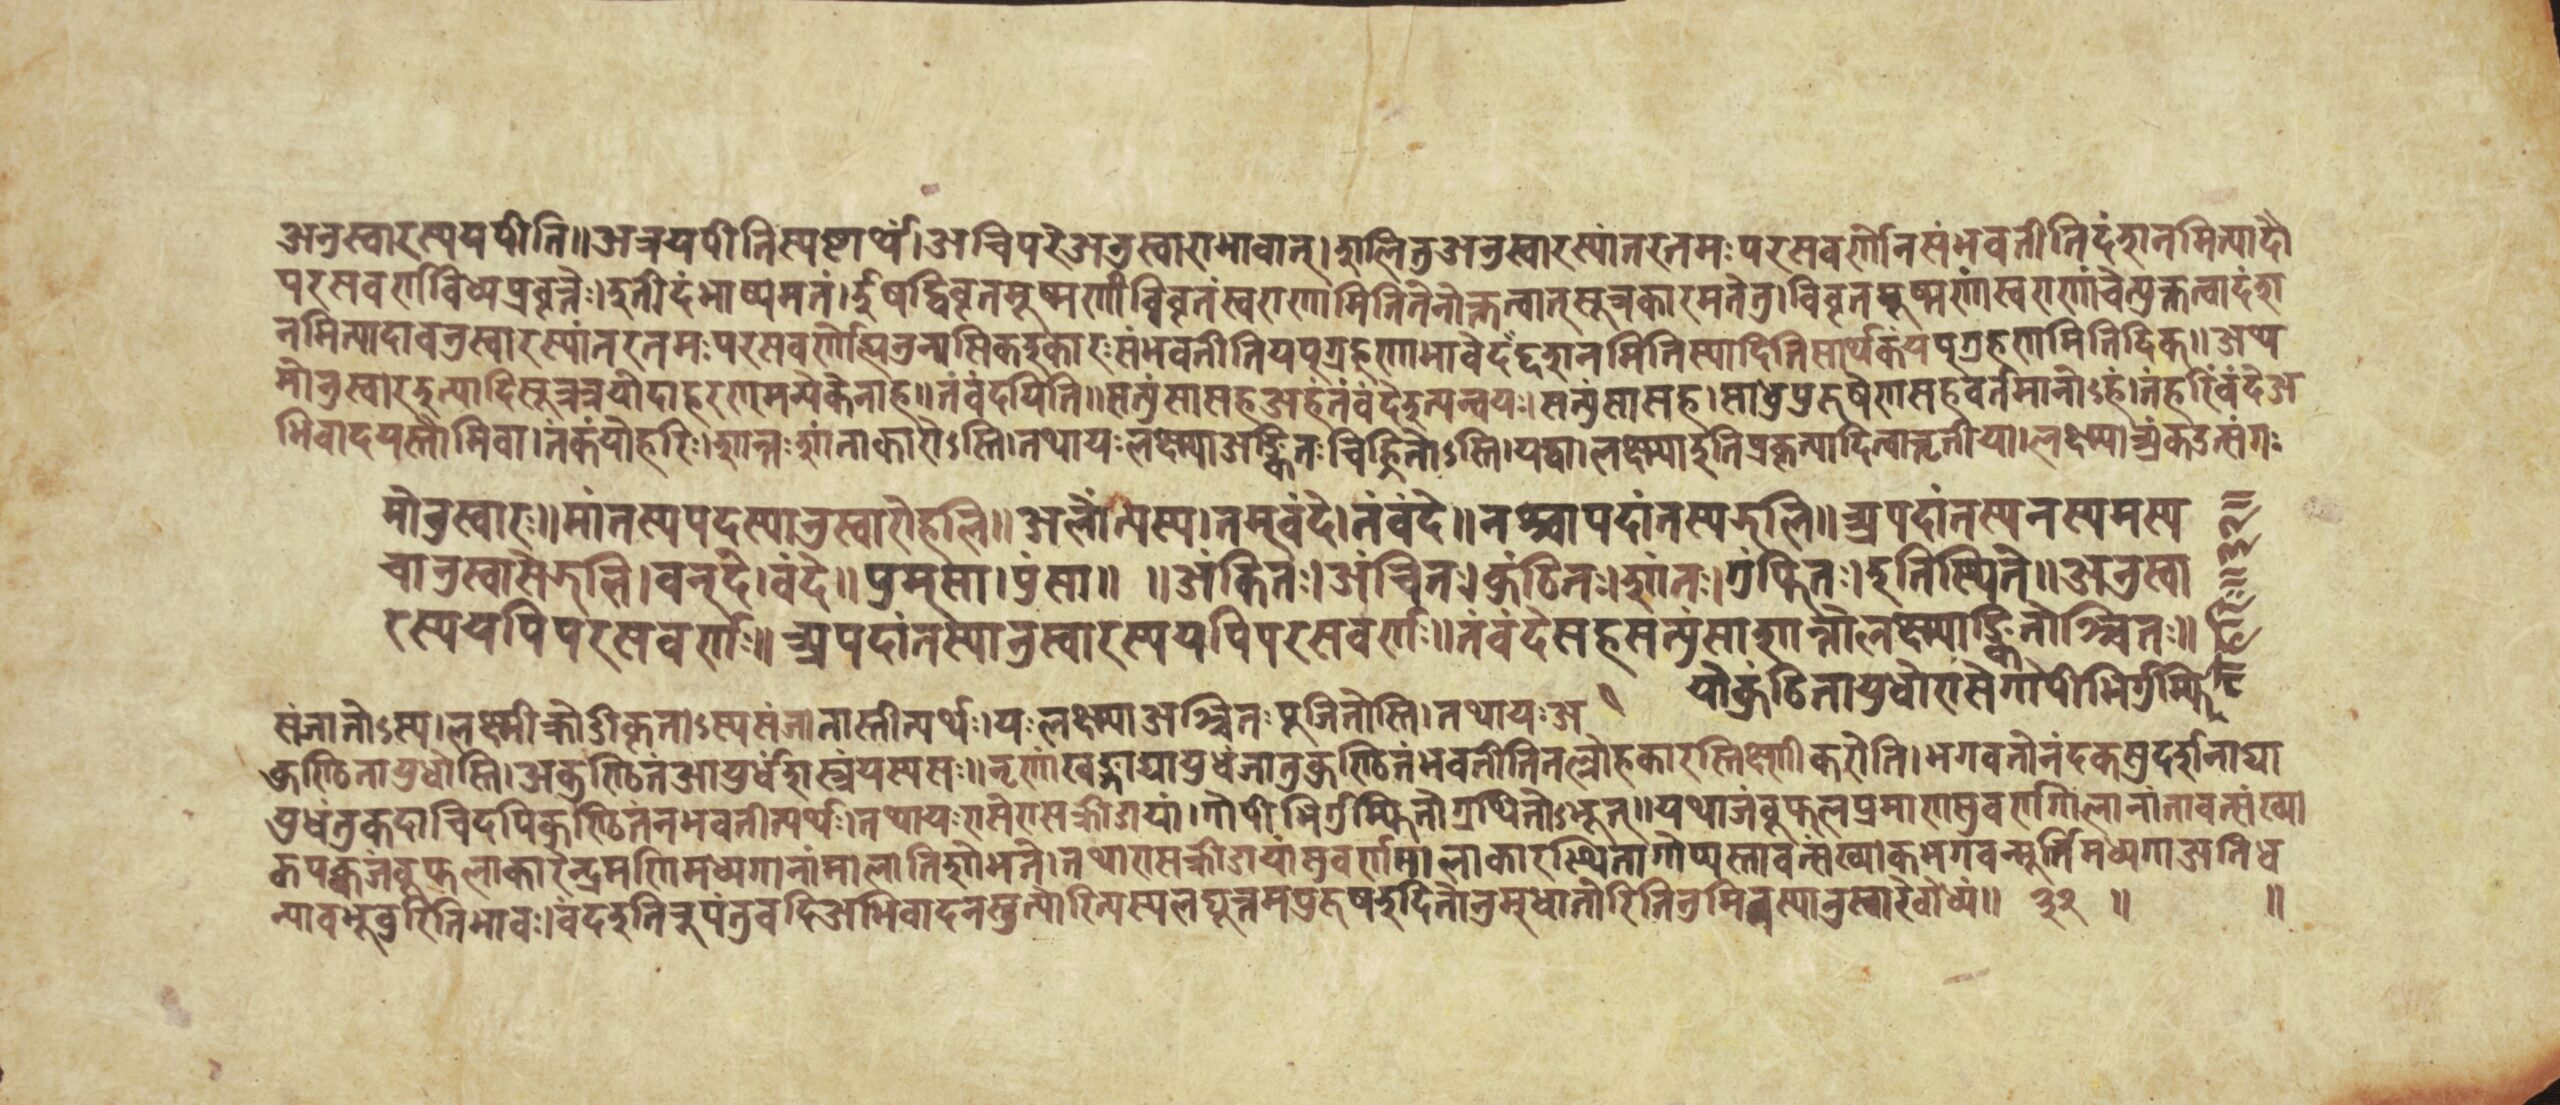 अनुस्वारस्ययपीति॥अत्रयपीतिस्पष्टार्थं।अचिपरेअनुस्वाराभावात्।शलितुअनुस्वारस्यांतरतमःपरसवर्णोनसंभवतीतिदंशनमित्यादौ
परसवर्णविध्यप्रवृत्तेः।इतीदंभाष्यमतं।ईषद्विवृतमूष्मणांविवृतंस्वराणामितितेनोक्तत्वात्सूत्रकारमतेतु।विवृतमूष्मणांस्वराणांचेत्युक्तत्वाद्दंश
नमित्यादावनुस्वारस्यांतरतमःपरसवर्णोह्यनुनासिकइकारःसंभवतीतियय्ग्रहणाभावेदंशनमितिस्यादितिसार्थकंयय्ग्रहणमितिदिक्॥अथ
मोनुस्वारइत्यादिसूत्रत्रयोदाहरणमन्येकेनाह॥तंवंदयिति॥सत्पुंसासहअहंतंवंदेइत्यन्वयः।सत्पुंसासह।साधुपुरुषेणसहवर्तमानोऽहं।तंहरिंवंदेअ
भिवादयेस्तौमिवा।तंकंयोहरिः।शान्तःशांताकारोऽस्ति।तथायःलक्ष्म्याअङ्कितःचिह्नितोऽस्ति।यद्वा।लक्ष्म्याइतिप्रकृत्यादित्वात्तृतीया।लक्ष्म्याअंकउत्संगः
मोनुस्वारः॥मांतस्यपदस्यानुस्वारोहलि॥अलोंत्यस्य।तम्वंदे।तंवंदे॥नश्चापदांतस्यझलि॥अपदांतस्यनस्यमस्य
चानुस्वारोझलि।वन्दे।वंदे॥पुम्सा।पुंसा॥ ॥अंकितः।अंचितः।कुंठितः।शांतः।गुंफितः।इतिस्थिते॥अनुस्वा
रस्ययपिपरसवर्णः॥अपदांतस्यानुस्वारस्ययपिपरसवर्णः॥तंवंदेसहसत्पुंसाशान्तोलक्ष्म्याङ्कितोञ्चितः॥
योकुंठितायुधोरासेगोपीभिर्गुम्फि
संजातोऽस्य।लक्ष्मीक्रोडीकृताऽस्यसंजातास्तीत्यर्थः।यःलक्ष्म्याअञ्चितःपूजितोस्ति।तथायःअ
कुण्ठितायुधोस्ति।अकुण्ठितंआयुधंशस्त्रंयस्यसः॥नृणांखड्गाद्यायुधंजातुकुण्ठितंभवतीतितल्लोहकारस्तिक्ष्णीकरोति।भगवतोनंदकसुदर्शनाद्या
युधंतुकदाचिदपिकुण्ठितंनभवतीत्यर्थः।तथायःरासेरासक्रीडायां।गोपीभिर्गुम्फितोग्रथितोऽभूत्॥यथाजंबूफलप्रमाणसुवर्णगोलानांतावत्संख्या
कपक्वजंबूफलाकारेन्द्रमणिमध्यगानांमालातिशोभते।तथारासक्रीडायांसुवर्णमालाकारस्थितागोप्यस्तावत्संख्याकभगवन्मूर्तिमध्यगाअतिध
न्याबभूवुरितिभावः।वंदइतिरूपंतुवदिअभिवादनस्तुत्योरित्यस्यलघूत्तमपुरुषइदितोनुम्धातोरितिनुमितस्यानुस्वारेबोध्यं॥ ३२ ॥ ॥